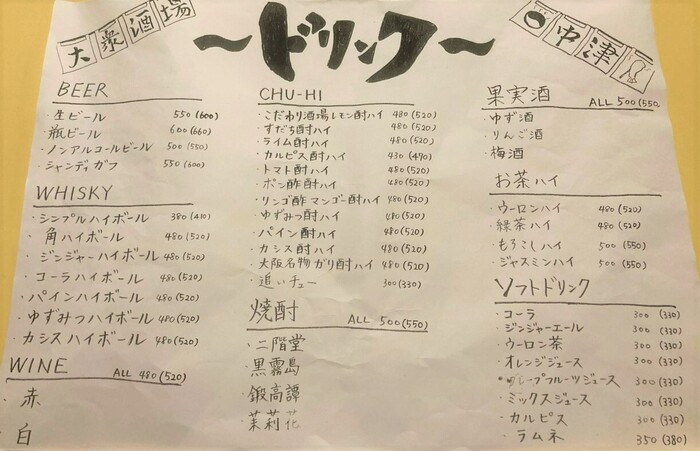 大衆酒場
〜ドリンク〜
中津
BEER
・生ビール 550(600)
・瓶ビール 600(660)
・ノンアルコールビール 500(550)
・シャンディガフ 550(600)
WHISKY
・シンプルハイボール 380(410)
・角ハイボール 480(520)
・ジンジャーハイボール 480(520)
・コーラハイボール 480(520)
・パインハイボール 480(520)
・ゆずみつハイボール 480(520)
・カシスハイボール 480(520)
WINE ALL 480(520)
・赤
・白
CHU-HI
・こだわり酒場レモン酎ハイ 480(520)
・すだち酎ハイ 480(520)
・ライム酎ハイ 480(520)
・カルピス酎ハイ 430(470)
・トマト酎ハイ 480(520)
・ポン酢酎ハイ 480(520)
・リンゴ酢マンゴー酎ハイ 480(520)
・ゆずみつ酎ハイ 480(520)
・パイン酎ハイ 480(520)
・カシス酎ハイ 480(520)
・大阪名物ガリ酎ハイ 480(520)
・追いチュー 300(330)
焼酎 ALL 500(550)
・二階堂
・黒霧島
・鍛高譚
・茉莉花
果実酒 ALL 500(550)
・ゆず酒
・りんご酒
・梅酒
お茶ハイ
・ウーロンハイ 480(520)
・緑茶ハイ 480(520)
・もろこしハイ 500(550)
・ジャスミンハイ 500(550)
ソフトドリンク
・コーラ 300(330)
・ジンジャーエール 300(330)
・ウーロン茶 300(330)
・オレンジジュース 300(330)
・グレープフルーツジュース 300(330)
・ミックスジュース 300(330)
・カルピス 300(330)
・ラムネ 350(380)